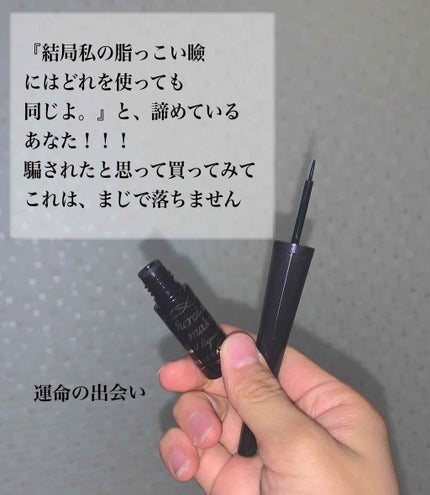 『結局私の脂っこい瞼
にはどれを使っても
同じよ。』と、諦めている
あなた！！！
騙されたと思って買ってみて
これは、まじで落ちません
運命の出会い